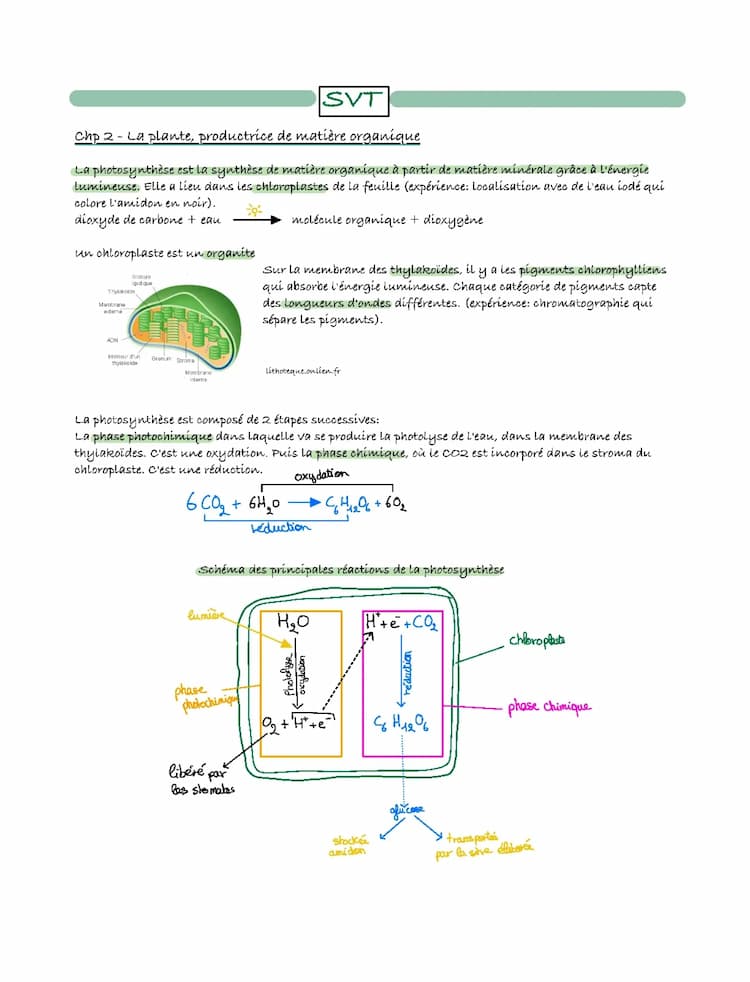 SVT
Chp 2 - La plante, productrice de matière organique
La photosynthèse est la synthèse de matière organique à partir de matière minérale grâce à l'énergie
lumineuse. Elle a lieu dans les chloroplastes de la feuille (expérience: localisation avec de l'eau iodé qui
colore l'amidon en noir).
dioxyde de carbone + eau → molécule organique + dioxygène
Un chloroplaste est un organite
Sur la membrane des thylakoïdes, il y a les pigments chlorophylliens
qui absorbe l'énergie lumineuse. Chaque catégorie de pigments capte
des longueurs d'ondes différentes. (expérience: chromatographie qui
sépare les pigments).
Globule
lipidique
Thylakoïde
Membrane
externe
ADN
Intérieur d'un
thylakoïde
Granum
Stroma
Membrane
interne
lithotheque.onlien.fr
La photosynthèse est composé de 2 étapes successives:
La phase photochimique dans laquelle va se produire la photolyse de l'eau, dans la membrane des
thylakoïdes. C'est une oxydation. Puis la phase chimique, où le CO2 est incorporé dans le stroma du
chloroplaste. C'est une réduction.
oxydation
6 CO₂ + 6H₂O → C₆H₁₂O₆ + 6O₂
réduction
Schéma des principales réactions de la photosynthèse
lumière
H₂O
H⁺+e⁻+CO₂
chloroplaste
Photolyse
oxydation
réduction
phase
photochimique
phase chimique
O₂ + H⁺+e⁻
C₆H₁₂O₆
libéré par
les stomates
glucose
stockée
amidon
transportée
par la sève élaborée